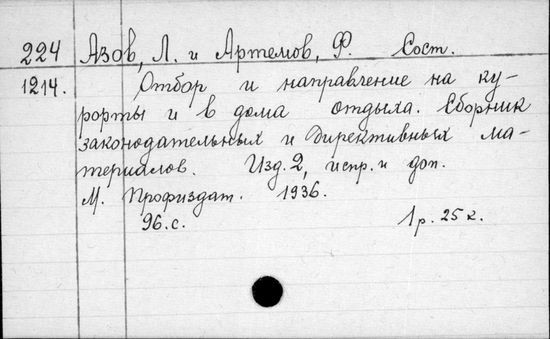 224 Азов, Л. и Артемов, Ф. Сост.
1214. Отбор и направление на ку-
рорты и в дома отдыха. Сборник
законодательных и директивных ма-
териалов. Изд. 2, испр. и доп.
М. Профиздат. 1936.
96. с. 1 р. 25 к.